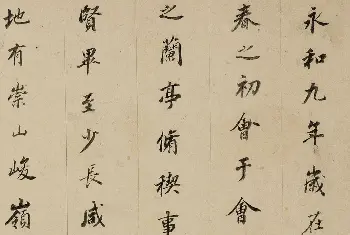 永和九年歲在
春之初會于會
之蘭亭脩稧事
賢畢至少長咸
地有崇山峻嶺